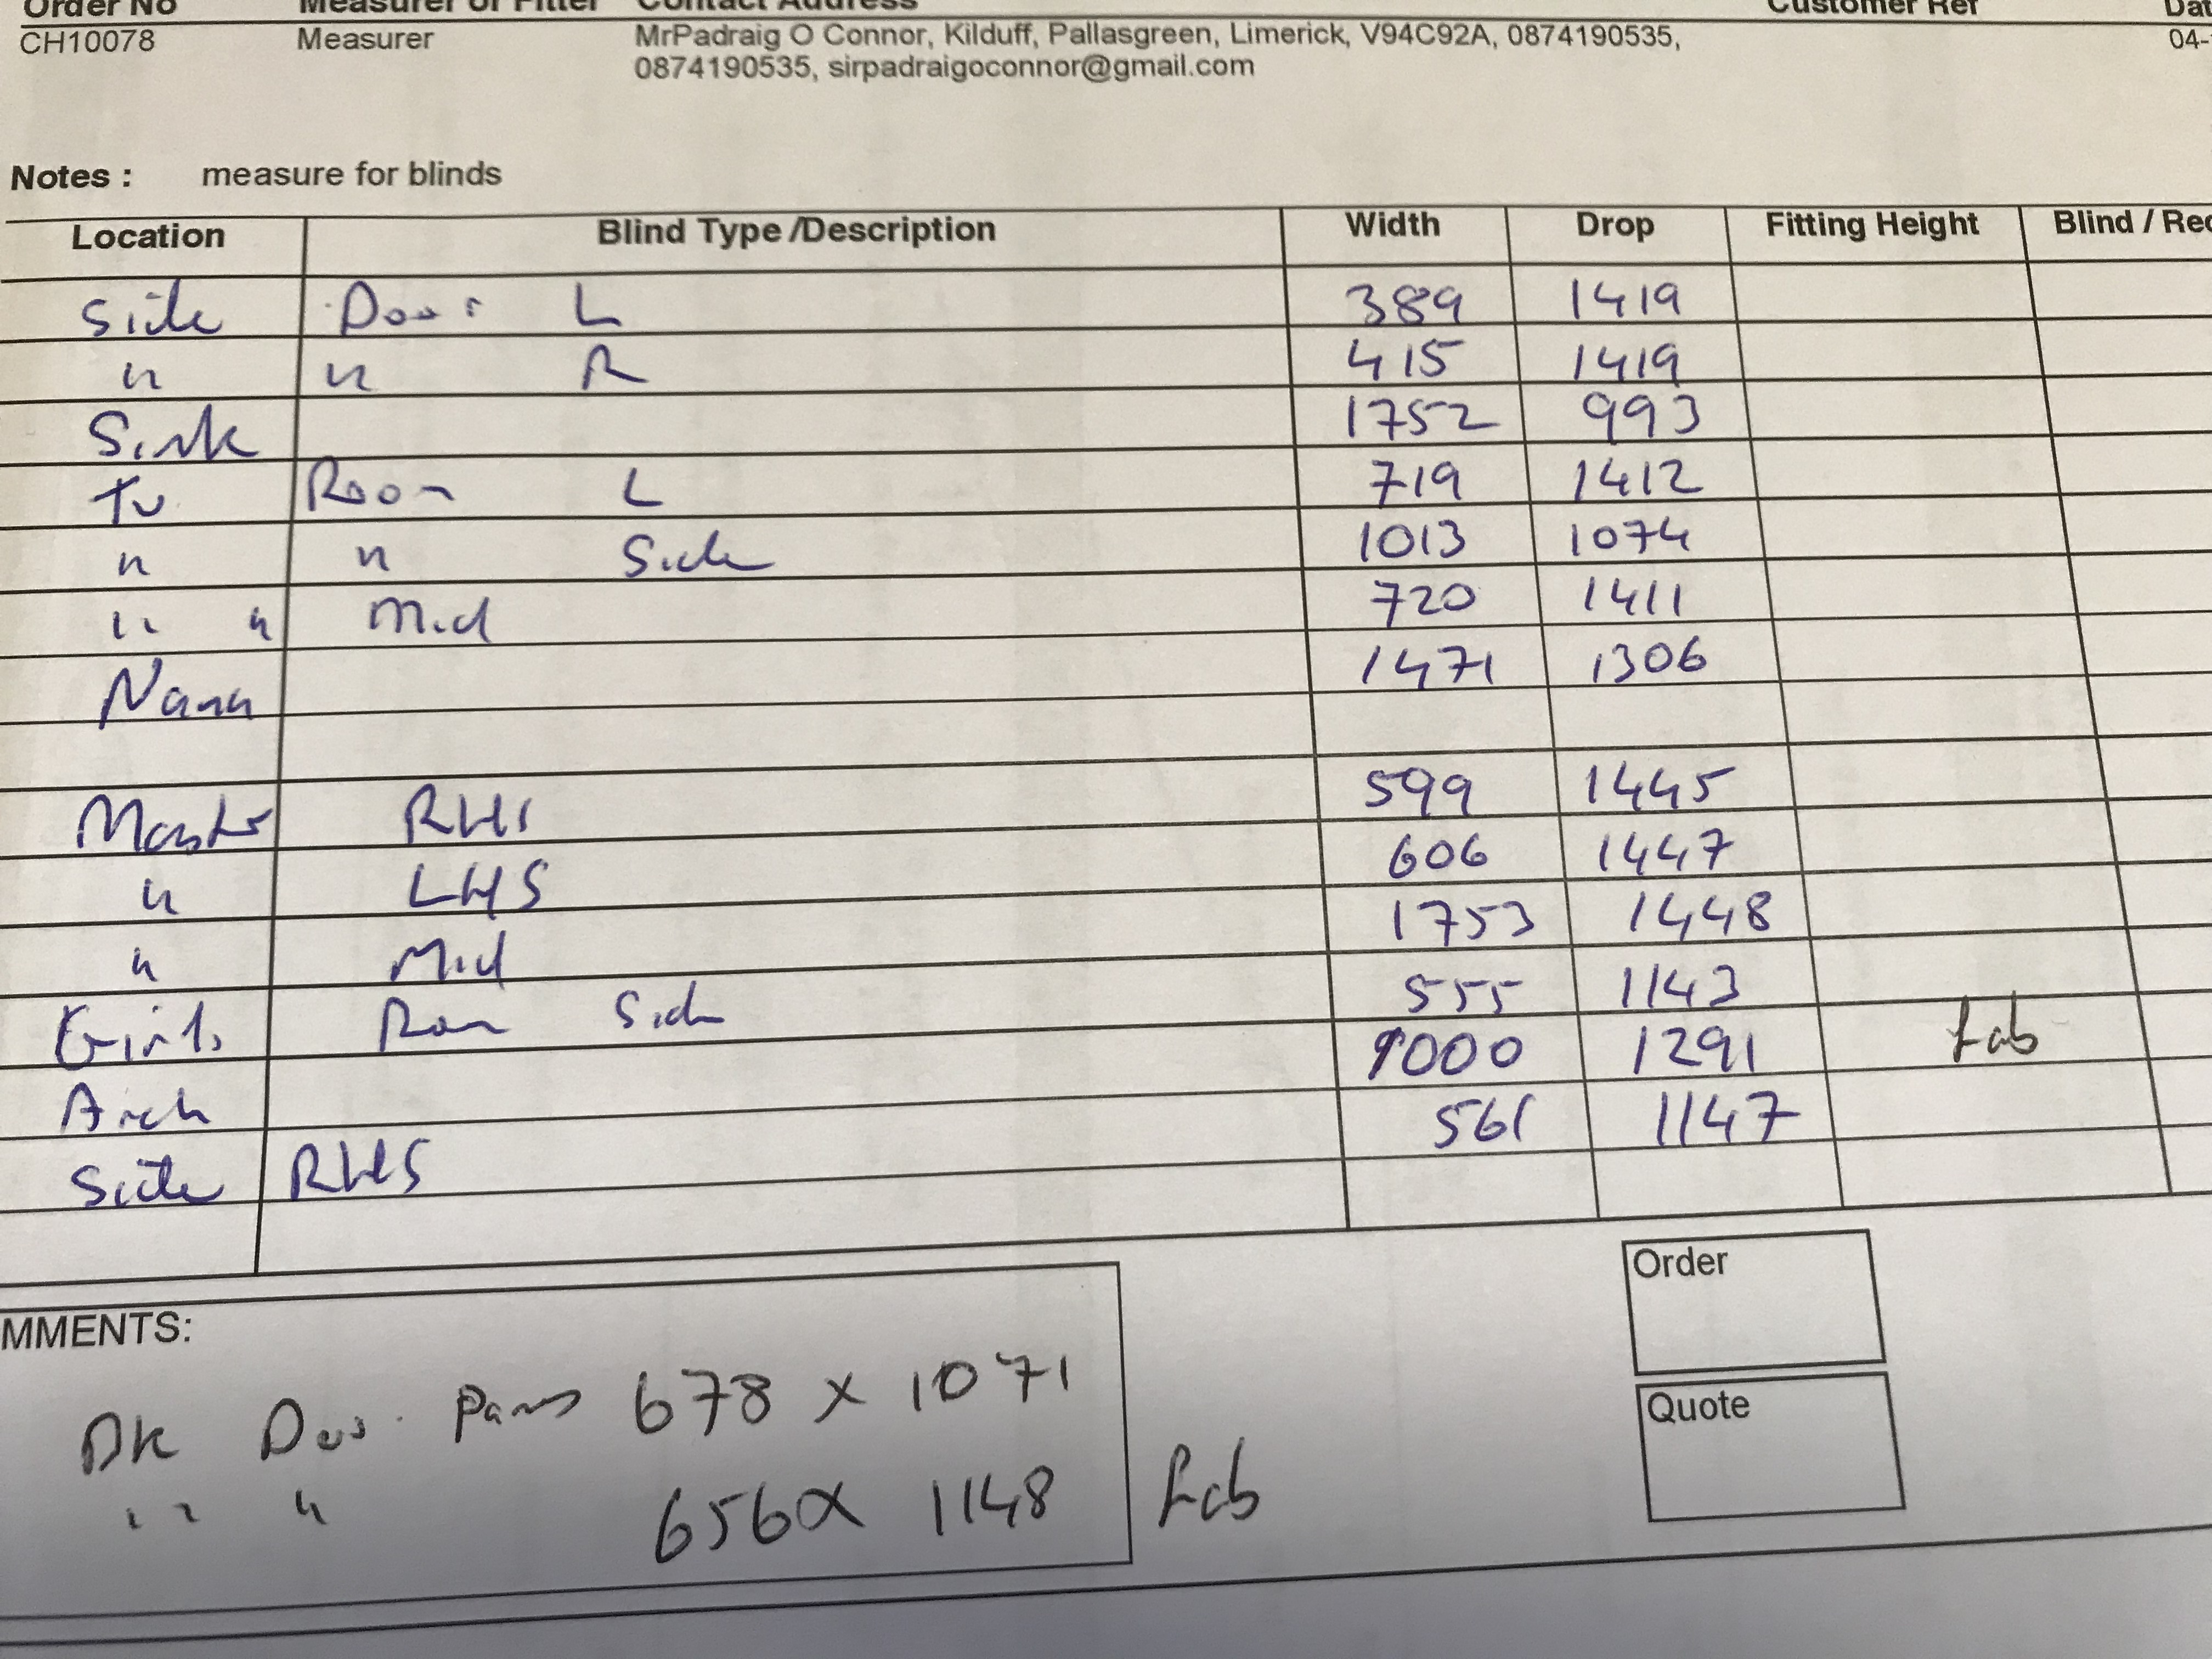 Order No Measurer or Fitter Contact Address Customer Ref Dat
CH10078 Measurer MrPadraig O Connor, Kilduff, Pallasgreen, Limerick, V94C92A, 0874190535, 04-
0874190535, sirpadraigoconnor@gmail.com
Notes : measure for blinds
Location Blind Type /Description Width Drop Fitting Height Blind / Rec
Side Door L 389 1419
" " R 415 1419
Sink 1752 993
Tv Room L 719 1412
" " Side 1013 1074
" " Mid 720 1411
Nana 1471 1306
Master RHS 599 1445
" LHS 606 1447
" Mid 1753 1448
Girls Room Side 555 1143
Arch 1000 1291 Fab
Side RHS 561 1147
Order
MMENTS:
Quote
678 x 1071
" " 656 x 1148 Fab